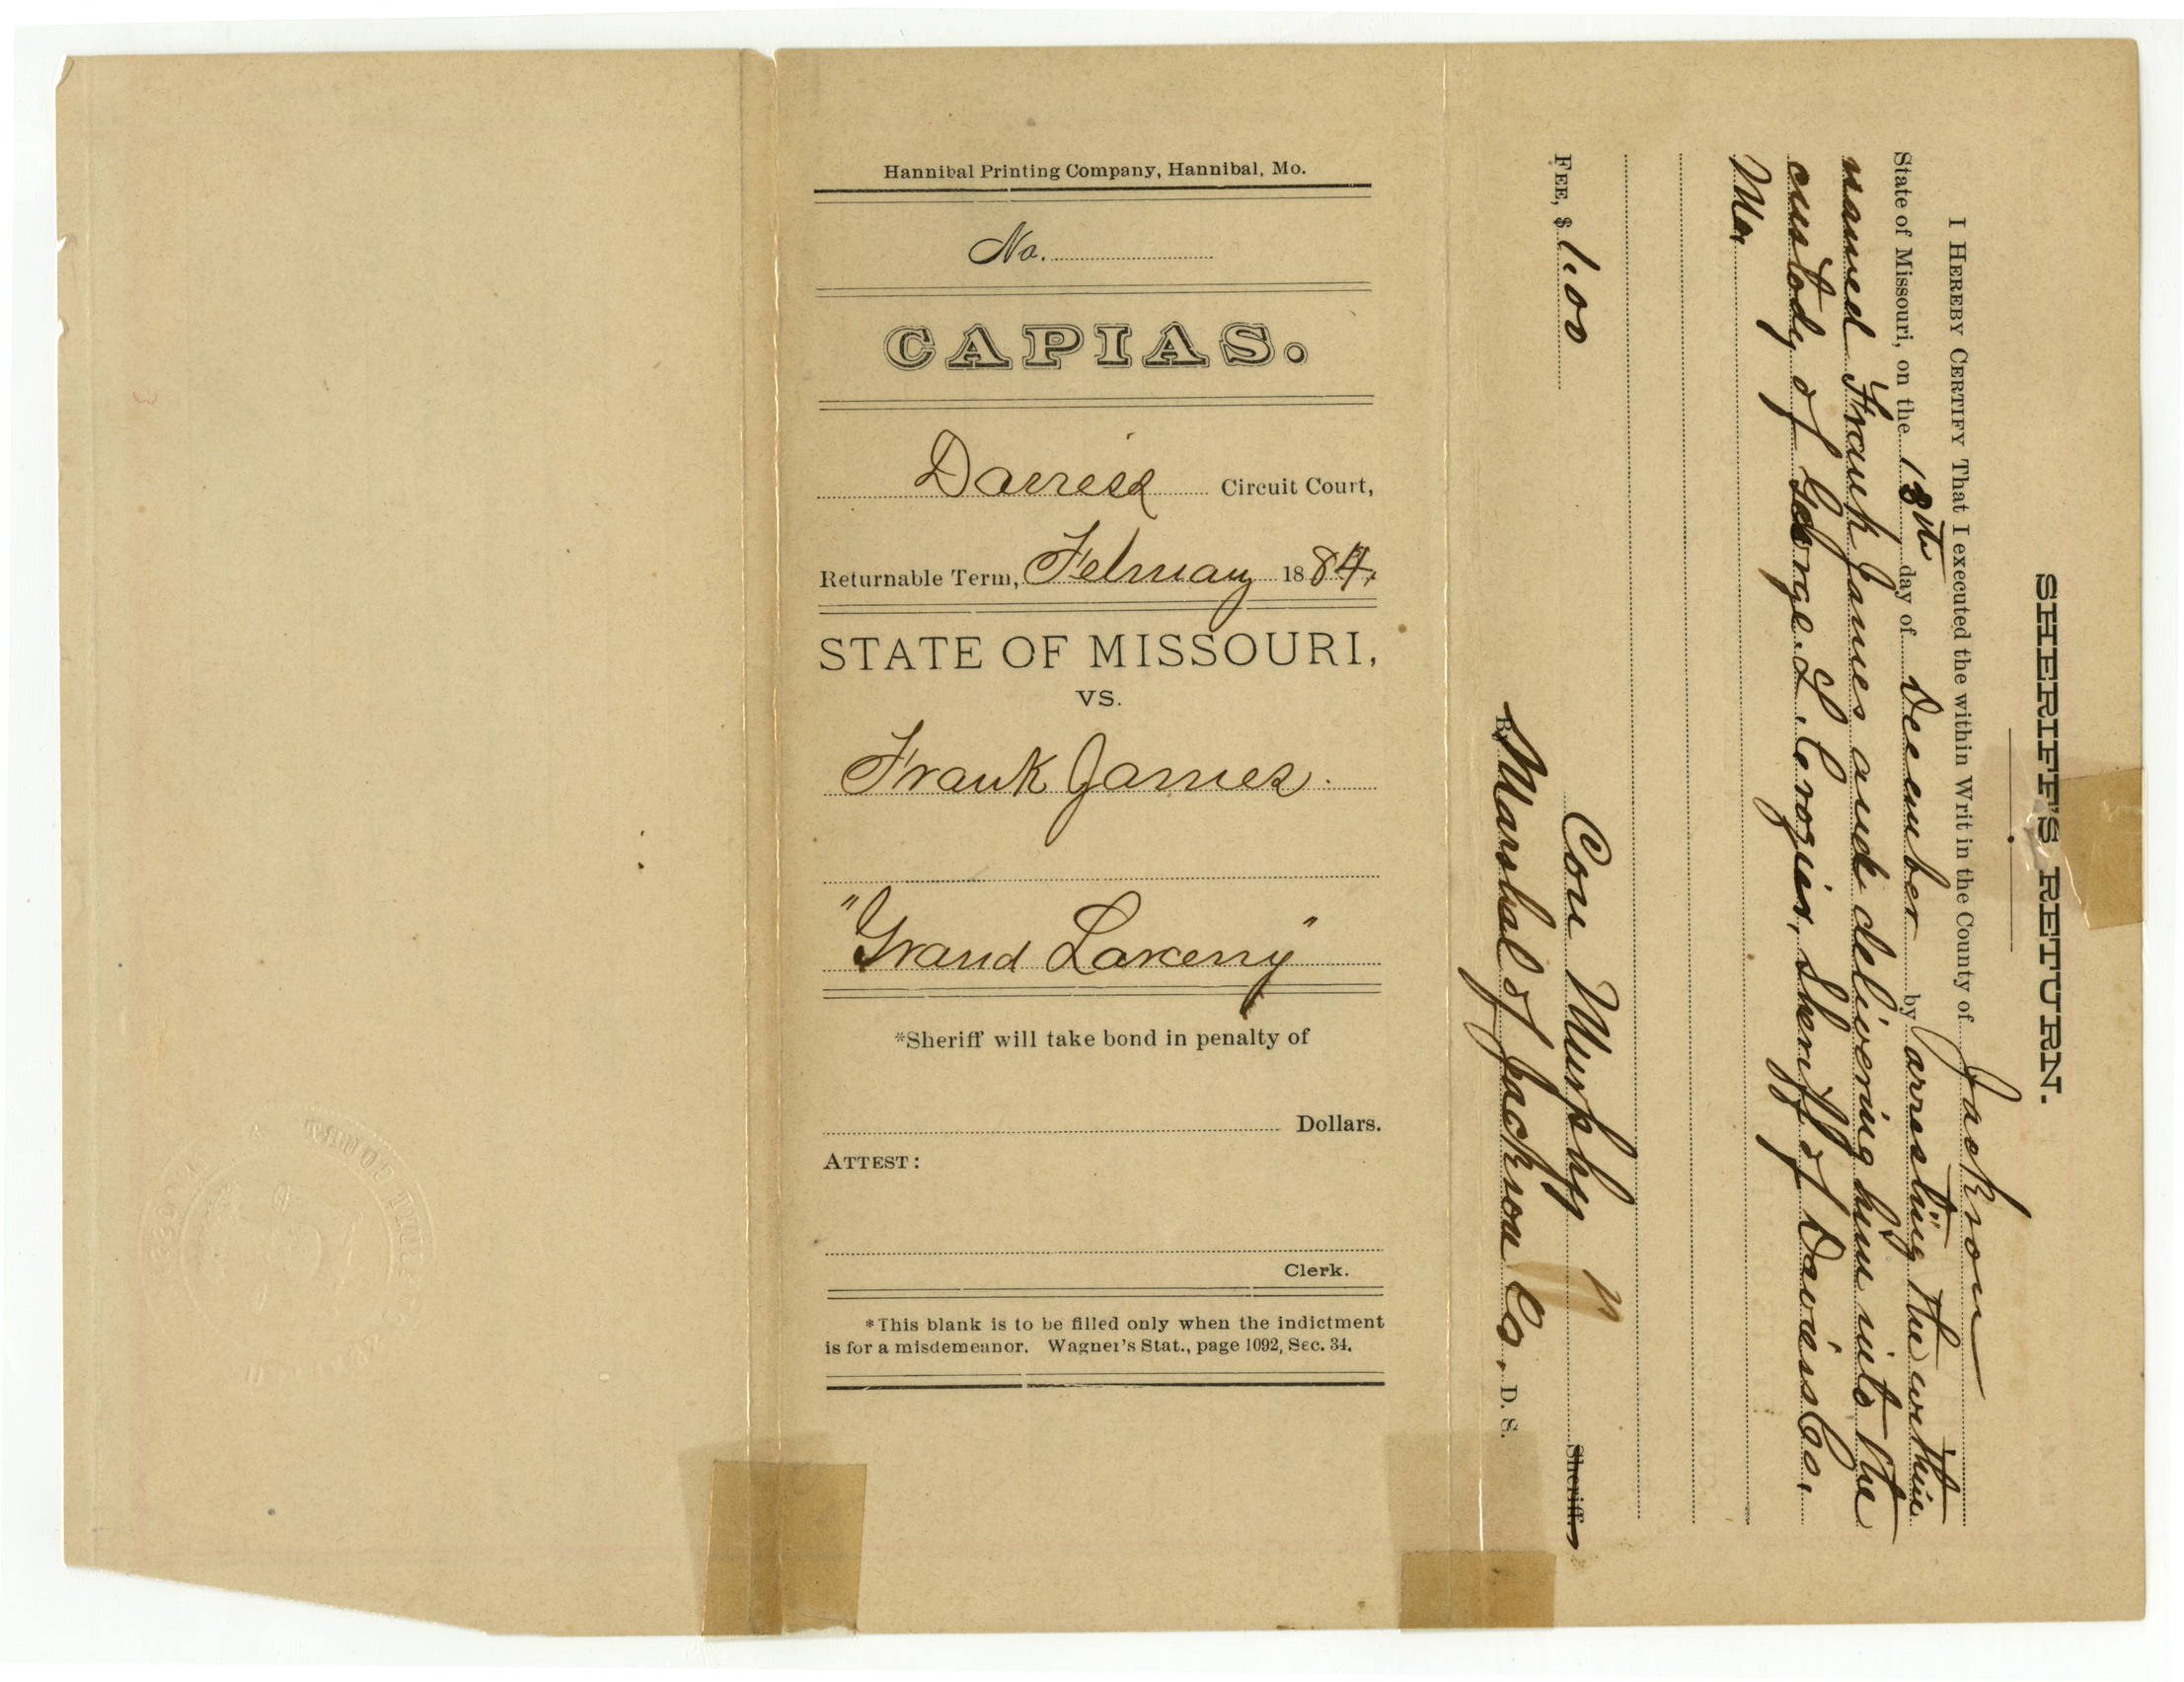 Hannibal Printing Company, Hannibal, Mo.
No.
CAPIAS.
Daviess Circuit Court,
Returnable Term, February 1884.
STATE OF MISSOURI,
VS.
Frank James.
"Grand Larceny"
*Sheriff will take bond in penalty of
Dollars.
ATTEST:
Clerk.
*This blank is to be filled only when the indictment
is for a misdemeanor. Wagner's Stat., page 1092, Sec. 34.
SHERIFF'S RETURN.
I HEREBY CERTIFY That I executed the within Writ in the County of Jackson
State of Missouri, on the 18th day of December by arresting the within
named Frank James and delivering him into the
custody of George Crozier, Sheriff of Daviess Co.
Mo.
FEE, $ 1.00
Con Murphy Sheriff.
By Marshal of Jackson Co. D. S.